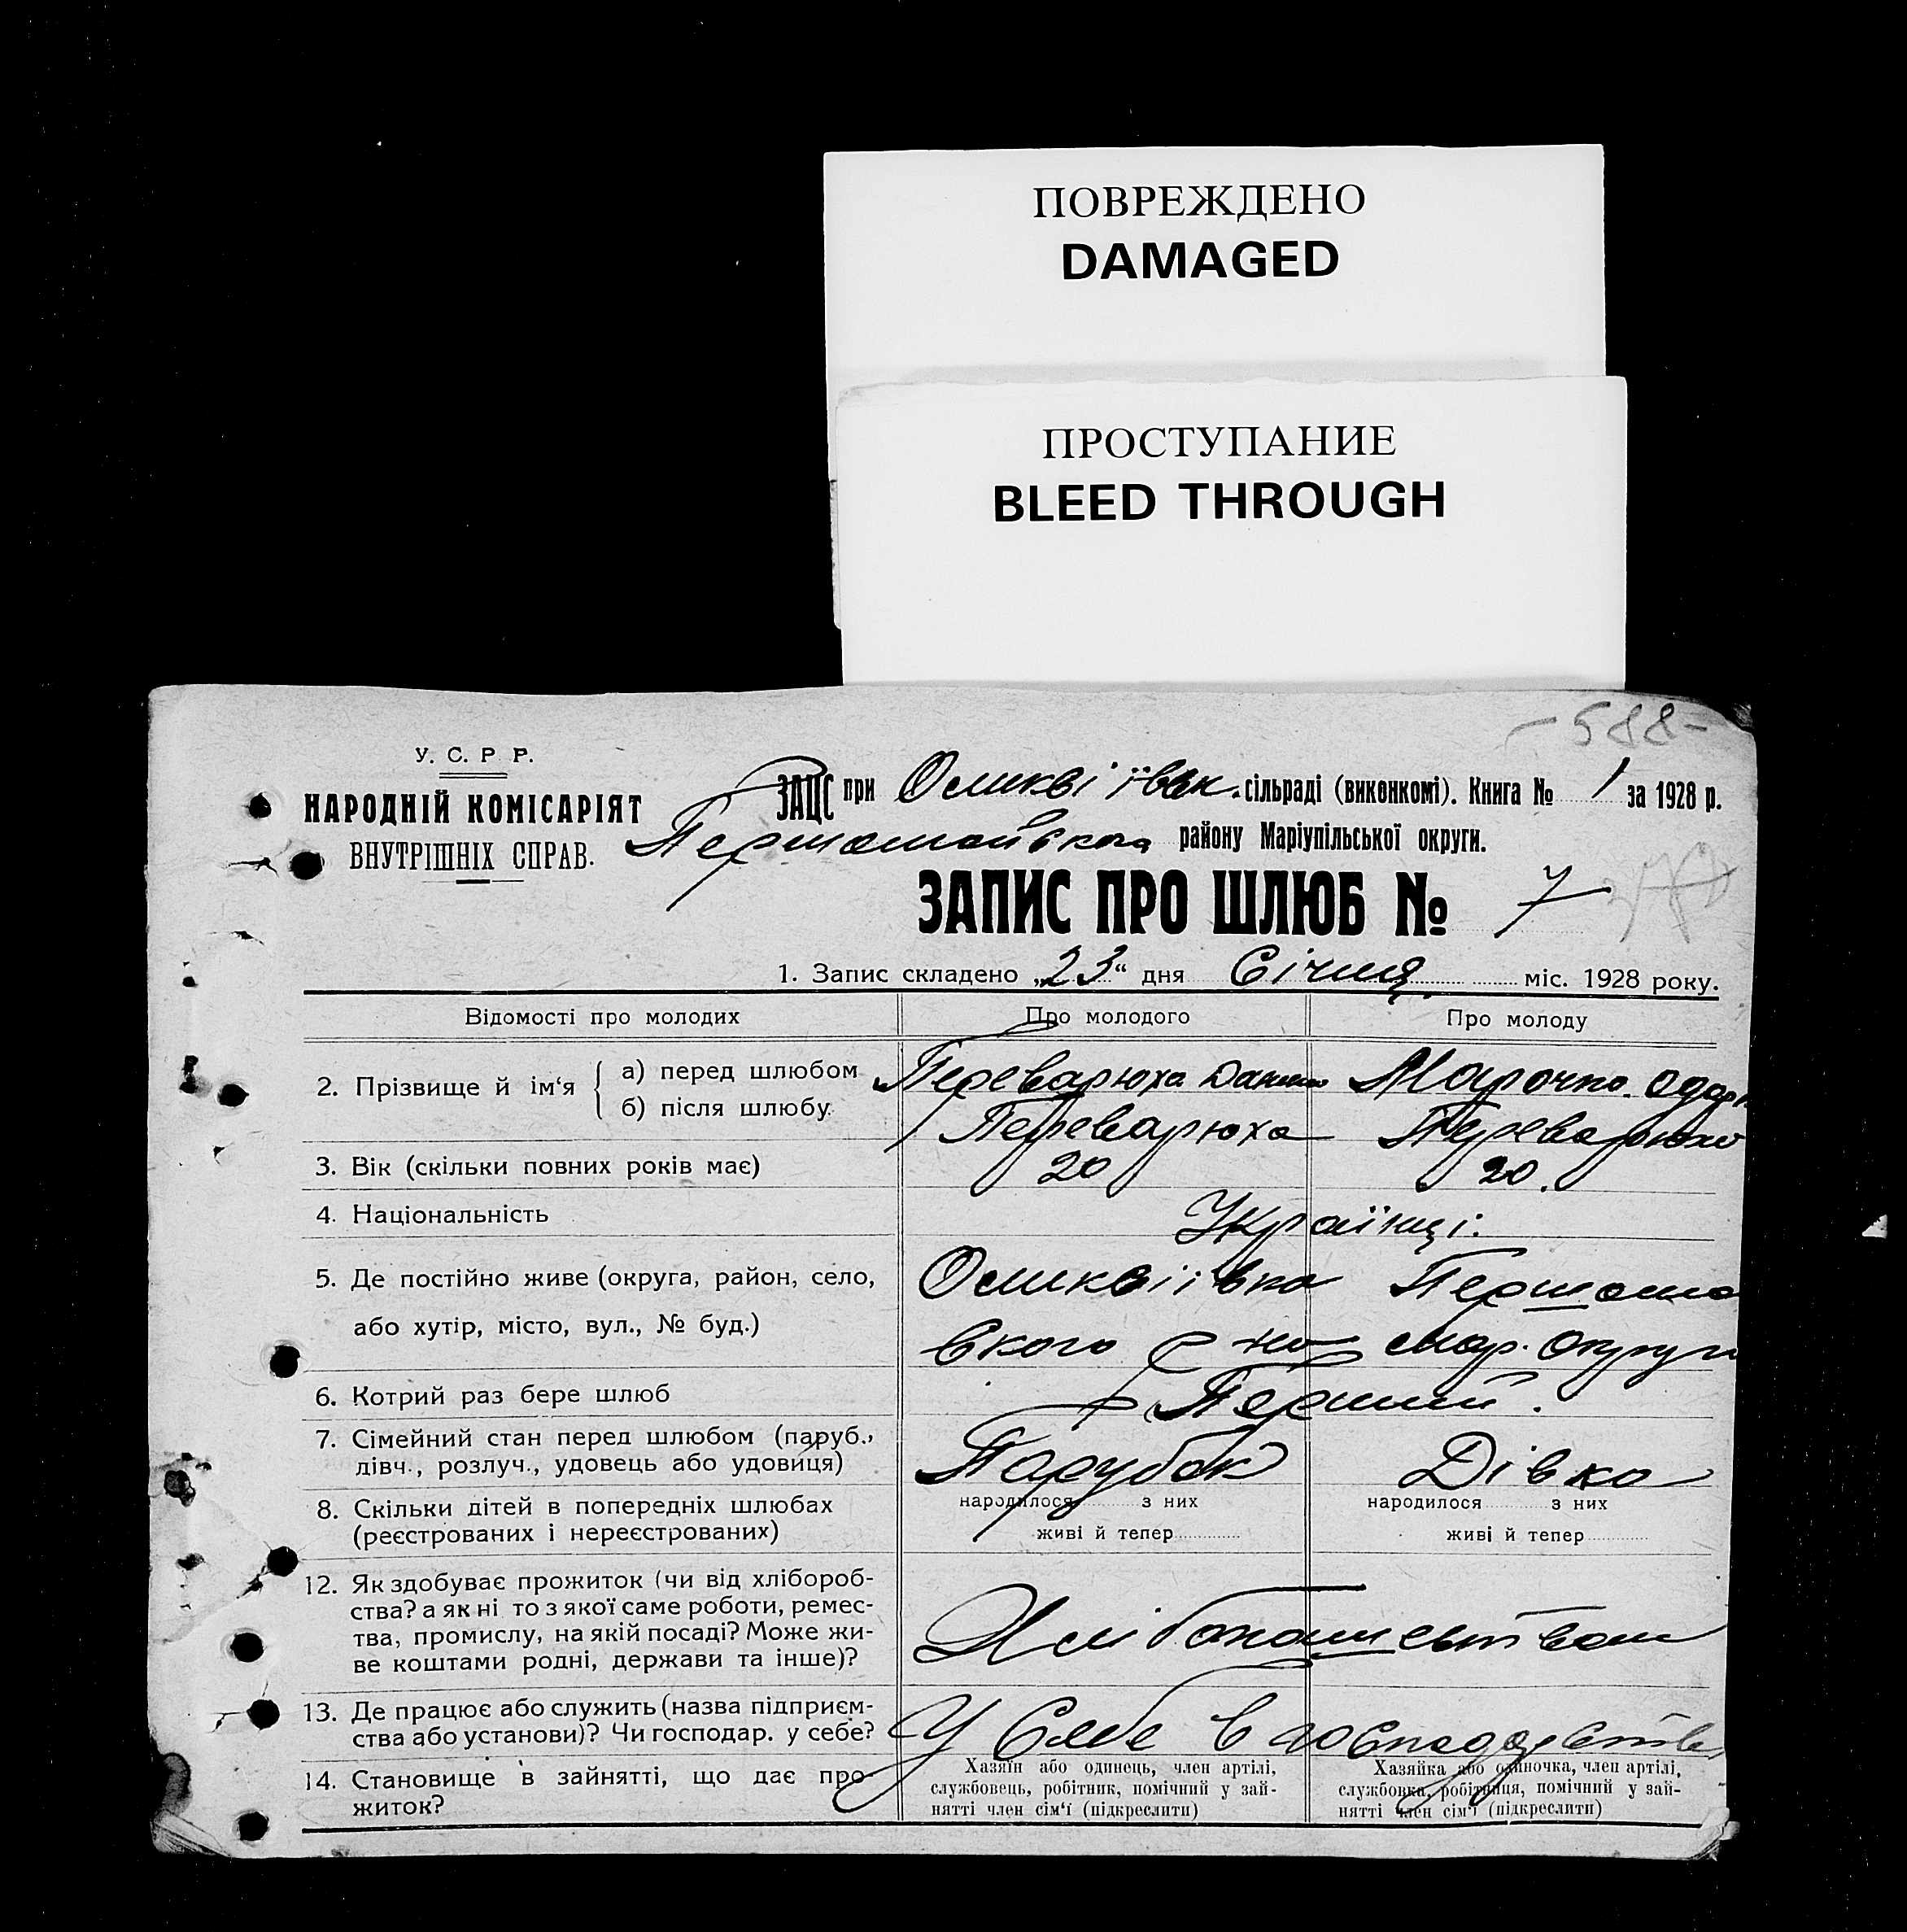 ПОВРЕЖДЕНО
DAMAGED
ПРОСТУПАНИЕ
BLEED THROUGH
-588-
У. С. Р Р.
НАРОДНІЙ КОМІСАРІЯТ
ВНУТРІШНІХ СПРАВ.
ЗАЦС при Оликвіївск. сільраді (виконкомі). Книга № 1 за 1928 р.
Першомайського району Маріупільської округи.
ЗАПИС ПРО ШЛЮБ № 7
1. Запис складено „23“ дня Січня міс. 1928 року.
Відомості про молодих Про молодого Про молоду
2. Прізвище й ім‘я { а) перед шлюбом Переварюха Данило Марочко Одар
б) після шлюбу Переварюха Переварюха
3. Вік (скільки повних років має) 20 20.
4. Національність Українці.
5. Де постійно живе (округа, район, село, Оликвіївка Першома
або хутір, місто, вул., № буд.) вського р-на Мар. Округи
6. Котрий раз бере шлюб Перший.
7. Сімейний стан перед шлюбом (паруб., Парубок Дівка
дівч., розлуч., удовець або удовиця)
8. Скільки дітей в попередніх шлюбах народилося з них народилося з них
(реєстрованих і нереєстрованих) живі й тепер живі й тепер
12. Як здобуває прожиток (чи від хлібороб-
ства? а як ні то з якої саме роботи, ремес-
тва, промислу, на якій посаді? Може жи-
ве коштами родні, держави та інше)?
13. Де працює або служить (назва підприєм- У Себе в господарстві
ства або установи)? Чи господар. у себе?
14. Становище в зайнятті, що дає про- Хазяїн або одинець, член артілі, Хазяйка або одиночка, член артілі,
житок? службовець, робітник, помічний у зай- службовка, робітниця, помічний у зай-
нятті член сім‘ї (підкреслити) нятті член сім‘ї (підкреслити)